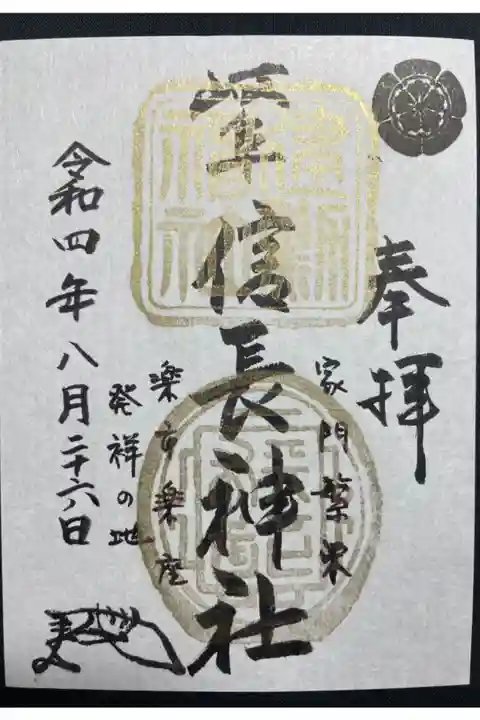 奉拝
家門繁栄
信長神社
楽市楽座
発祥の地
令和四年八月二十六日